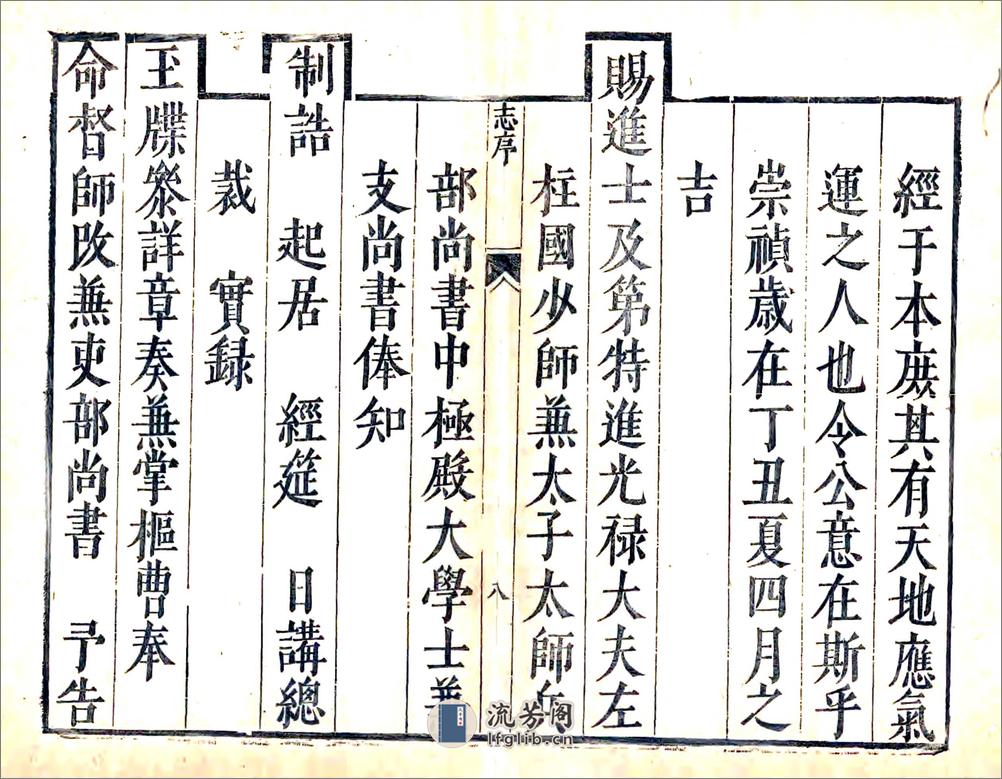 經于本庻其有天地應氣
運之人也令公意在斯乎
崇禎歲在丁丑夏四月之
吉
賜進士及第特進光禄大夫左
柱國少師兼太子太師兵
志序 八
部尚書中極殿大學士兼
支尚書俸知
制誥 起居 經筵 日講總
裁 實録
玉牒叅詳章奏兼掌樞曹奉
命督師改兼吏部尚書 予告
流芳阁
lfglib.cn